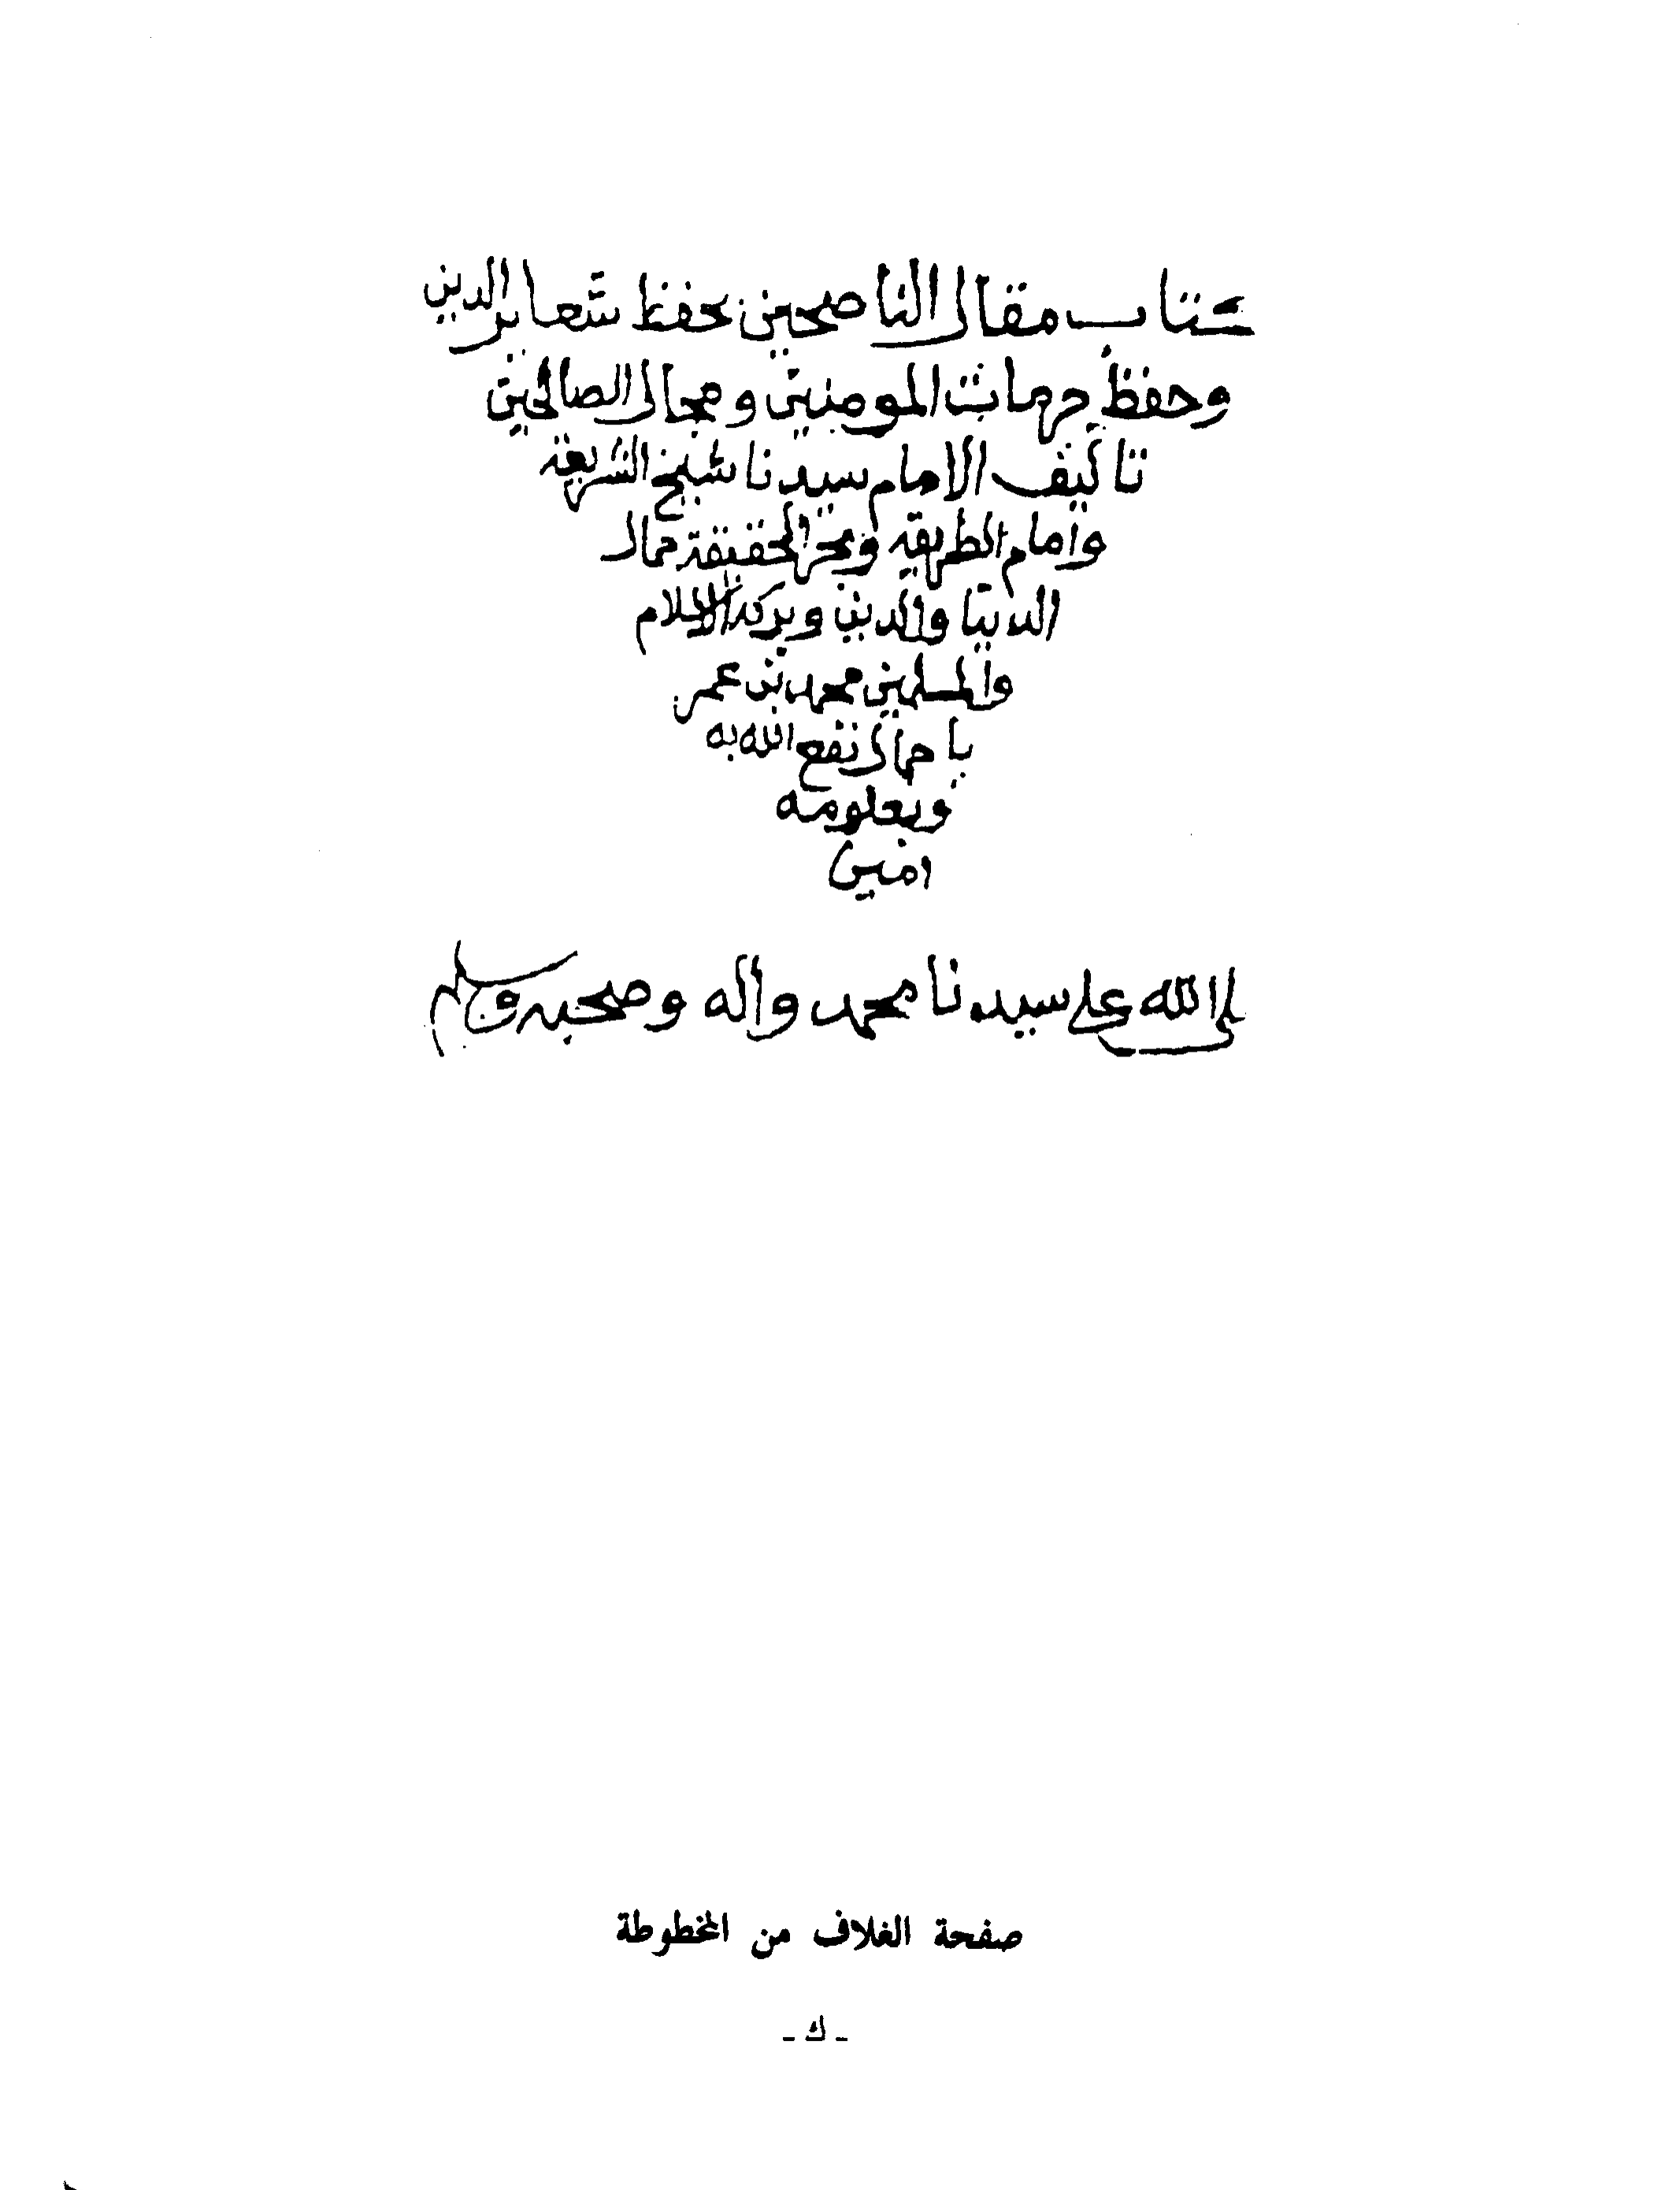 كتاب مقال الناصحين بحفظ شعاير الدين
وحفظ جهات المومنين ومجال الصالحين
تاليف الامام سيدنا شيخ الشريعة
وامام الطريقة وبحر الحقيقة جمال
الدنيا والدين وبركة الاسلام
والمسلمين محمد بن عمر
باجمال نفع الله به
وبعلومه
امين
لى الله على سيدنا محمد واله وصحبه وسلم
صفحة الغلاف من المخطوطة
- ك -